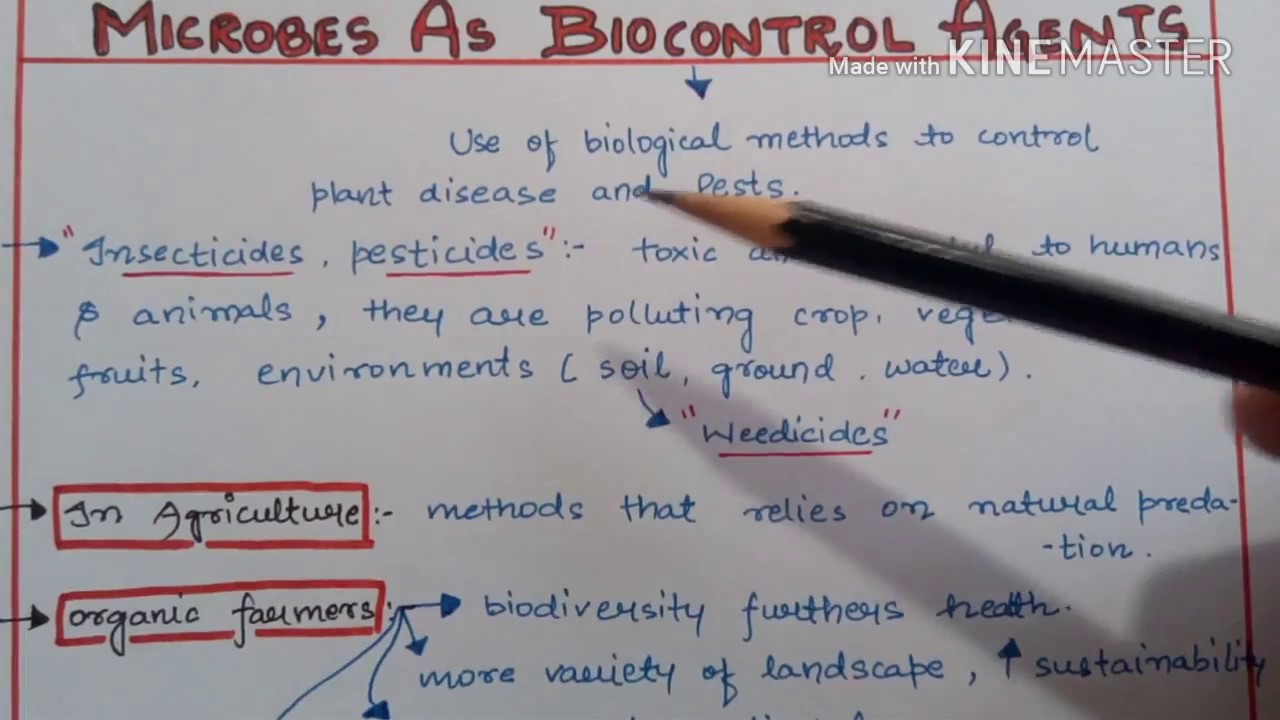 MICROBES AS BIOCONTROL AGENTS
Made with KINEMASTER
Use of biological methods to control
plant disease and Pests.
"Insecticides, pesticides":- toxic to humans
& animals, they are polluting crop,
fruits, environments (soil, ground. water).
"Weedicides"
In Agriculture:- methods that relies on natural preda-
-tion.
organic farmers:- biodiversity furthers health.
more variety of landscape, ↑ sustainability